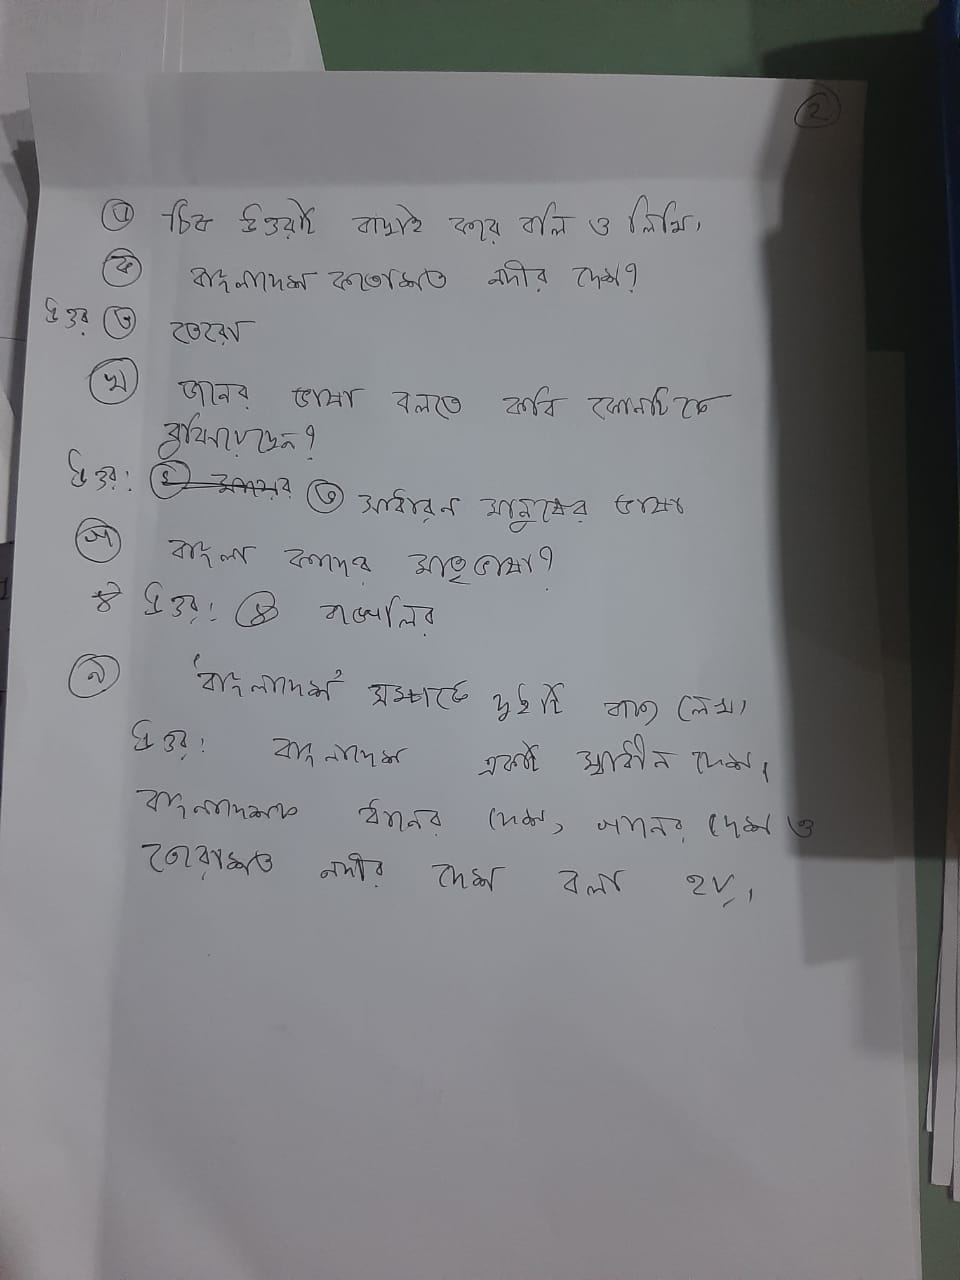 ২
৩ ঠিক উত্তরটি বাছাই করে বলি ও লিখি।
ক বাংলাদেশ কতোশত নদীর দেশ?
উত্তর ৩ তেরোশ
খ জনের ভাষা বলতে কবি কোনটিকে
বুঝিয়েছেন?
উত্তর: ৩ সাধারন মানুষের ভাষা
গ বাংলা কাদের মাতৃভাষা?
উত্তর: ৪ বাঙ্গালির
'বাংলাদেশ' সম্পর্কে দুইটি বাক্য লেখ।
উত্তর: বাংলাদেশ একটি স্বাধীন দেশ।
বাংলাদেশকে ধানের দেশ, গানের দেশ ও
তেরোশত নদীর দেশ বলা হয়।